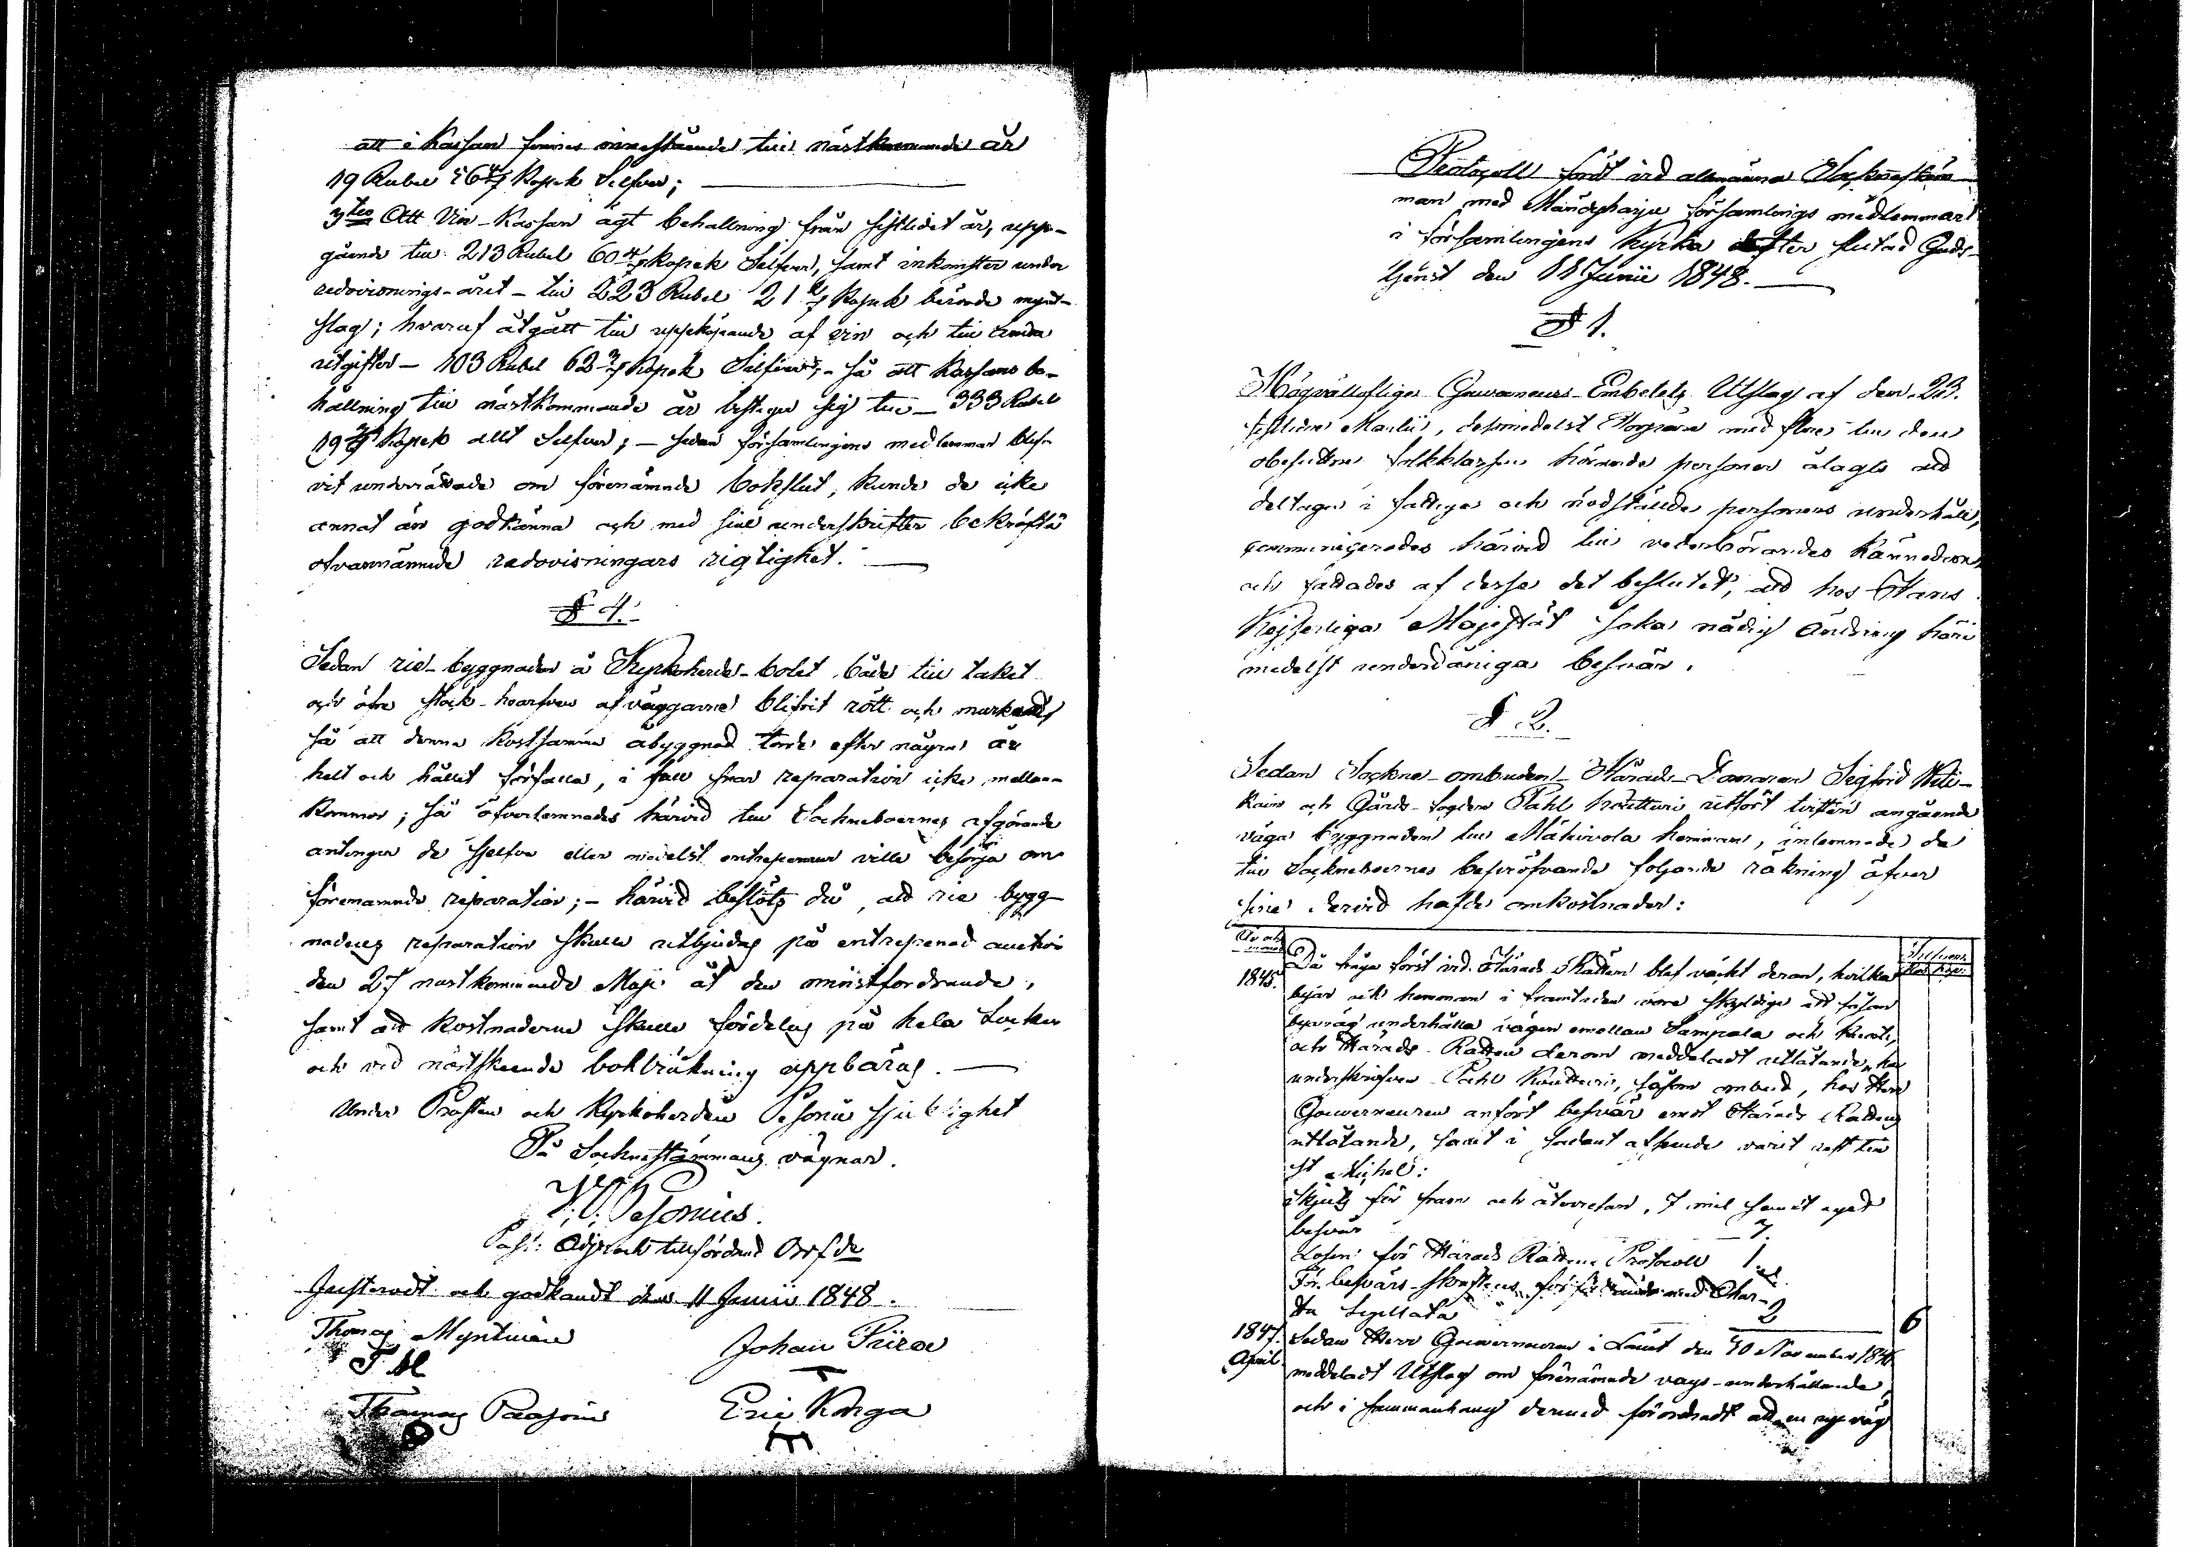 att i Kassan finnes innestående till nästkommande år
19 Rubel 56 4/7 Kopek Silfver;
3tio Att Vin-Kassan ägt behållning från sistledet år, upp-
gående till 213 Rubel 60 4/7 Kopek Silfver, samt inkomster under
redovisnings-året - till 223 Rubel 21 2/7 Kopek berörde mynt-
slag; hvaraf åtgått till uppköpande af vin och till andra
utgifter - 103 Rubel 62 3/7 Kopek Silfver; - så att Kassans be-
hållning till nästkommande år bestiger sig till - 333 Rubel
19 Kopek allt Silfver; - sedan församlingens medlemmar blif-
vit underrättade om förenämnde bokslut, kunde de icke
annat än godkänna och med sine underskrifter bekräfta
ofvannämnde redovisningars rigtighet.
§ 4.
Sedan rie-byggnaden å Kyrkoherde-bolet både till taket
och öfre stock-hvarfven af väggarne blifvit rött och murknadt
så att denna kostsamma åbyggnad torde efter några år
helt och hållet förfalla, i fall snar reparation icke mellan-
kommer; så öfverlemnades härvid till Socknoboernes afgörande
antingen de sjelfve eller medelst entrepeneur ville besörja om
förenämnde reparation; - härvid beslöts då, att rie bygg-
nadens reparation skulle utbjudas på entreprenad auction
den 27 nästkommande Maji åt den minstfordrande,
samt att kostnaderne skulle fördelas på hela Socken
och vid nästskeende bokräkning uppbäras.
Under Prosten och Kyrkoherden Pesonii sjuklighet
På Socknestämmans vägnar.
W. Pesonius.
Past: Adjunct tillförordnad Ordfde
Justeradt och godkändt den 11 Junii 1848.
Thomas Myntinen
Johan Piiren
T M
Thomas Paasoin
Eric Korga
Protocoll fördt vid allmänna Sockneståm-
man med Mändyharju församlings medlemmar
i församlingens Kyrka efter slutad Guds-
tjenst den 11 Junii 1848.
§ 1.
Högvälloflige Gouverneurs-Embetets Utslag af den 23.
sistledne Martii, derimedelst Torpare med flere till den
obesuttne folkklassen hörande personer ålagts att
deltaga i fattiga och nödstälde personers underhåll,
communicerades härvid till vederbörandes kännedom,
och fattades af desse det beslutet, att hos Hans
Kejserliga Majestät söka nådig ändring häri
medelst underdåniga besvär.
§ 2.
Sedan Sockne-ombuden - Härads-Domaren Sigfrid Weti-
kain och Gårds-fogden Påhl Koutturi utfört tvisten angående
väga byggnaden till Mäkivola hemman, inlemnade de
till Socknoboernes bepröfvande följande räkning öfver
sine dervid hafde omkostnader:
År och
månad
Silfver.
Rub. Kop.
1845.
Då fråga först vid Härads Rätten blef väckt derom, hvilka
byar och hemman i framtiden vore skyldige att såsom
byaväg underhålla vägen emellan Sampala och Kuorti,
och Härads Rätten derom meddeladt utlåtande, har
underskrifven Påhl Koutturi, såsom ombud, hos Herr
Gouverneuren anfört besvär emot Härads Rättens
utlåtande, samt i sådant afseende varit rest till
St Michel:
Skjuts för fram och återresan, 7 mil samt eget
besvär 7.
Lösen för Härads Rättens Protocoll 1.
För besvärs-skriftens författande med Char-
ta Sigillata 2
6
1847.
April
Sedan Herr Gouverneuren i Länet den 10 November 1846
meddeladt Utslag om förenämnde vägs-underhållande,
och i sammanhang dermed förordnadt att en ny väg